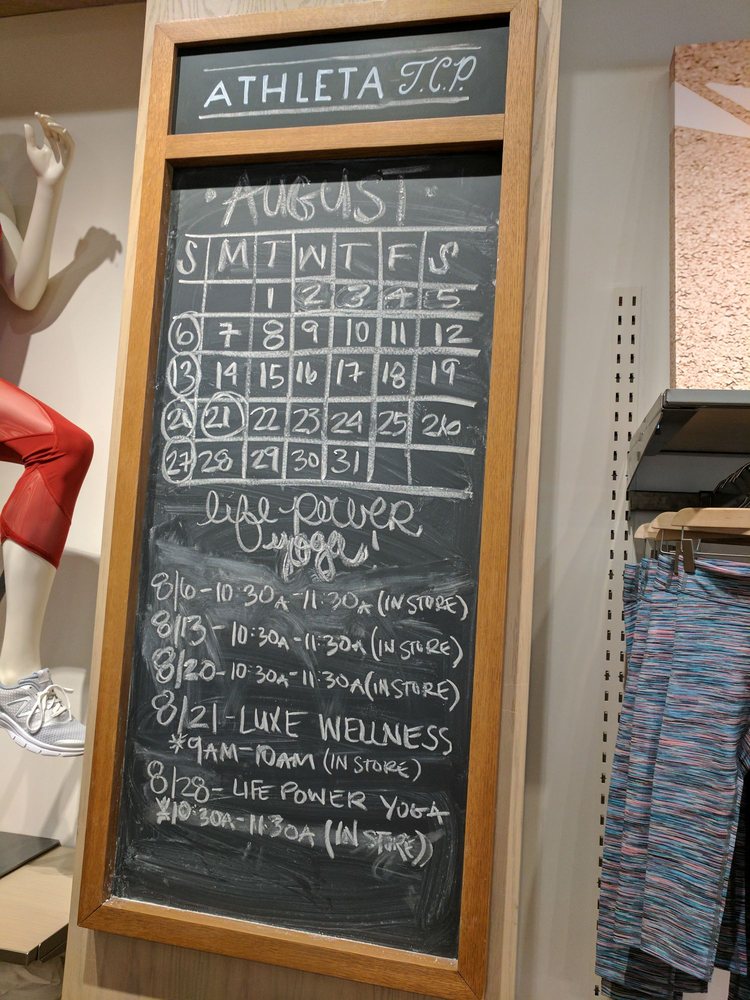 ATHLETA T.C.P.
·AUGUST·
S M T W T F S
1 2 3 4 5
6 7 8 9 10 11 12
13 14 15 16 17 18 19
20 21 22 23 24 25 26
27 28 29 30 31
life power
yoga!
8/6-10:30A-11:30A (IN STORE)
8/13-10:30A-11:30A (IN STORE)
8/20-10:30A-11:30A (IN STORE)
8/21-LUXE WELLNESS
*9AM-10AM (IN STORE)
8/28-LIFE POWER YOGA
*10:30A-11:30A (IN STORE)